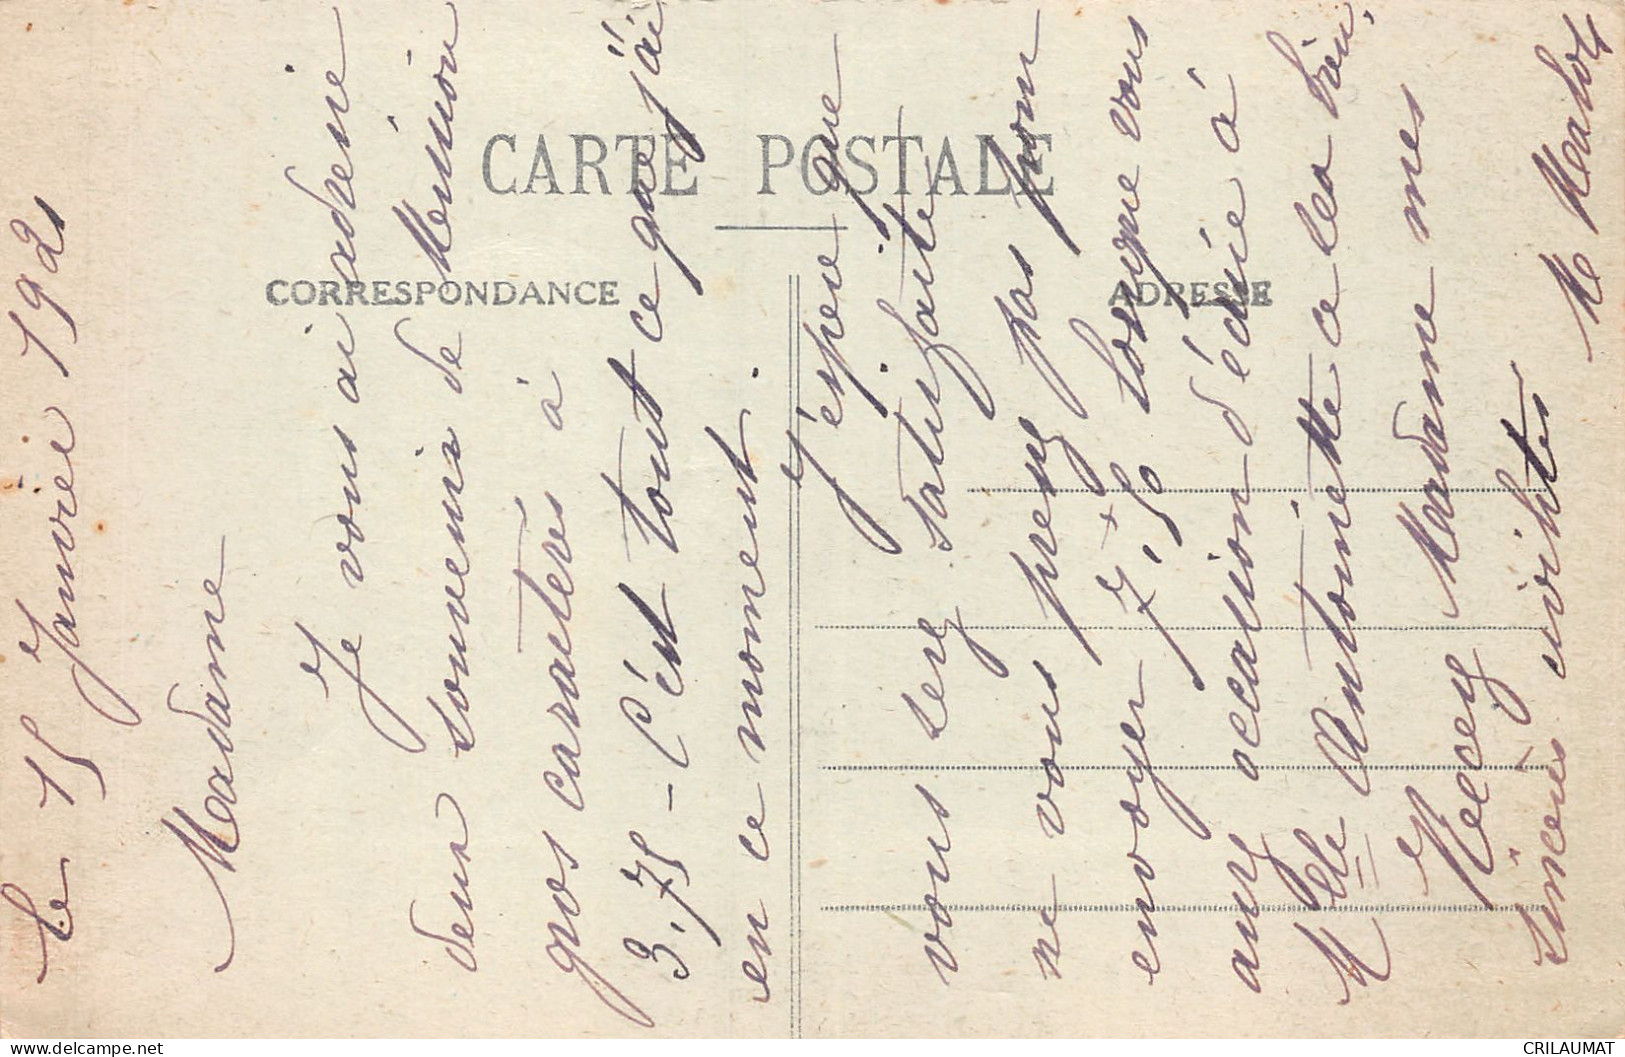 CARTE POSTALE
CORRESPONDANCE
ADRESSE
Le 15 Janvier 1921
Madame
Je vous ai adressé
deux souvenirs de Mession
gros caractères à
3,75 - C'est tout ce que j'ai
en ce moment.
J'espère que
vous serez satisfaite
ne vous prenez pas pour
envoyer 7,50 lorsque vous
aurez occasion d'écrire à
Mlle Antoinette ce sera bien,
Recevez Madame mes
sincères civilités
M Malot
CRILAUMAT